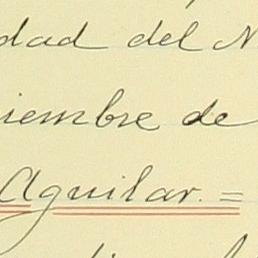 dad del N
iembre de
Aguilar. =